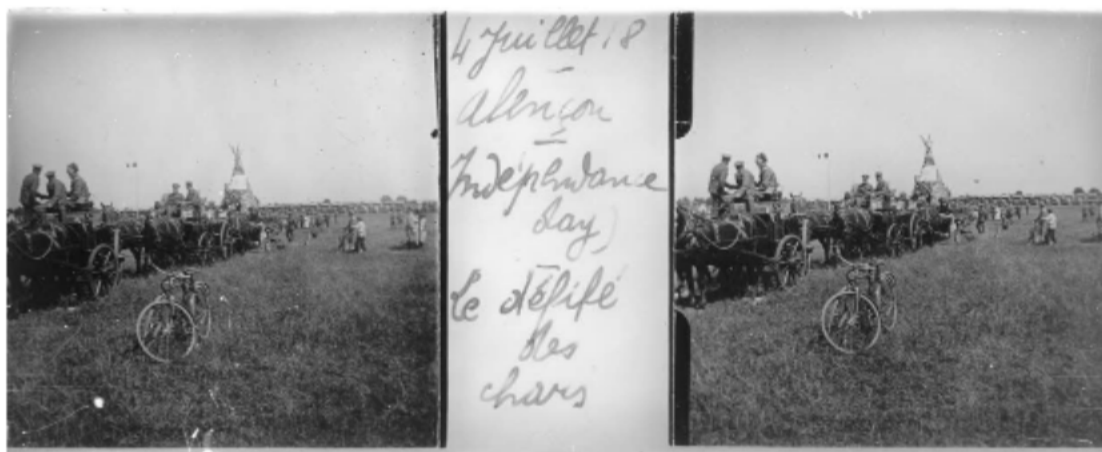 4 Juillet 18
Alençon
Indépendance
day)
Le défilé
des
chars